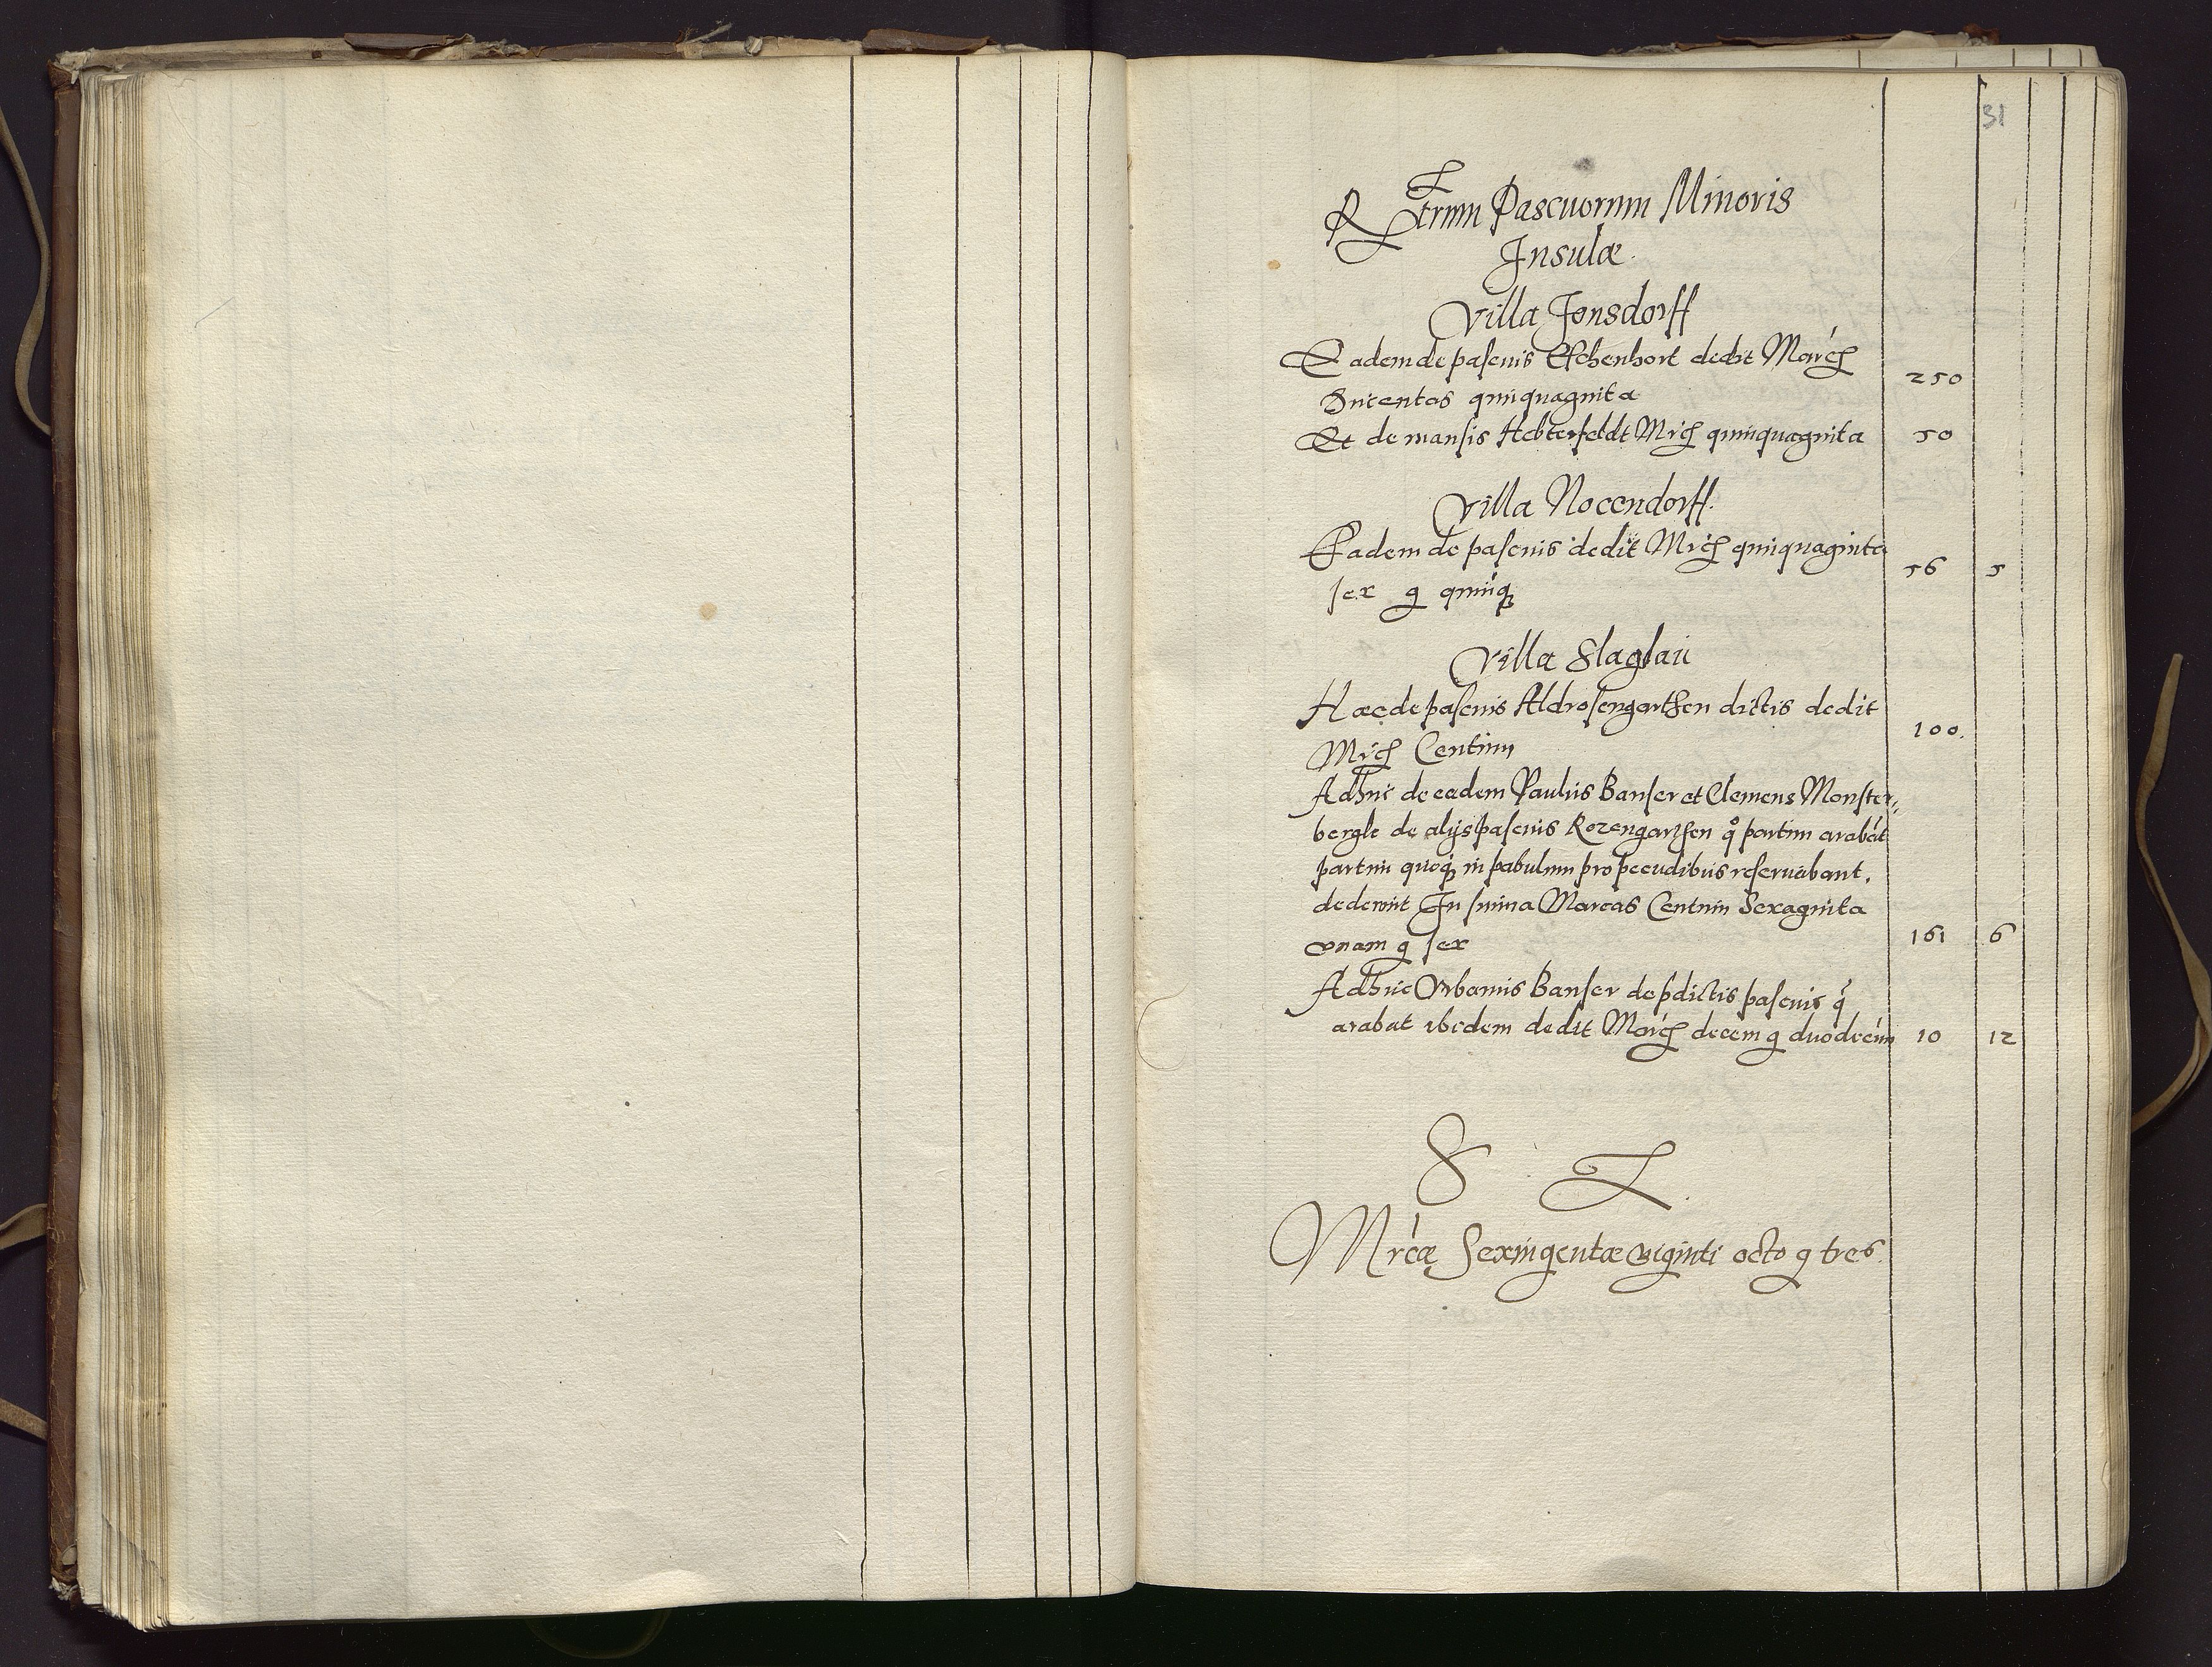 31
R Etrum Pascuorum Minoris
Insulæ
Villa Jonsdorff
Eadem de pascuis Eschenhort dedit Marcs
Ducentas quinquaginta 250
Et de mansis Hebterfeldt Mrcs quinquaginta 50
Villa Nocendorff.
Eadem de pascuis dedit Mrcs quinquaginta
sex g quinq 56 5
Villa Slaglau
Hæc de pascuis Aldrosengarthen dictis dedit
Mrcs Centum 100.
Adhuc de eadem Paulus Banser et Clemens Monster,,
bergk de alys pascuis Rozengarthen q partim arabāt
partim quoq in pabulum pro pecudibus reseruabant.
dederunt In suma Marcas Centum Sexaginta
vnam g sex 161 6
Adhuc Vrbanus Banser de pdictis pascuis q
arabat ibidem dedit Marcs decem g duodecim 10 12
S L.
Mrcæ Sexingentæ viginti octo g tres.